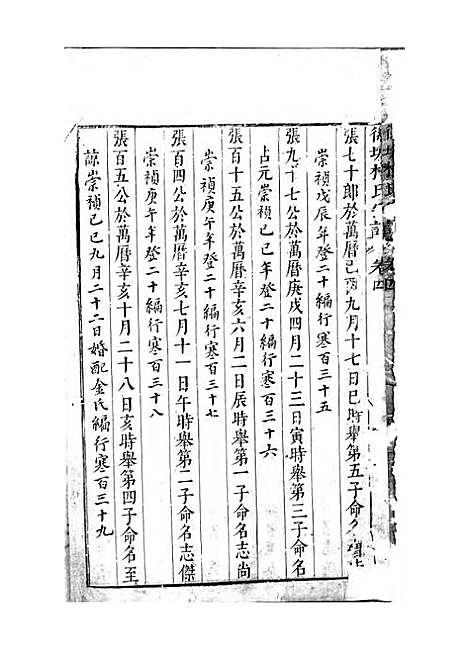 後坑林氏宗譜 卷四
張七十郎於萬曆己酉九月十七日巳時舉第五子命名
崇禎戊辰年登二十編行寒百三十五
張九十七公於萬曆庚戌四月二十三日寅時舉第三子命名
占元崇禎己巳年登二十編行寒百三十六
張百十五公於萬曆辛亥六月二日辰時舉第一子命名志尚
崇禎庚午年登二十編行寒百三十七
張百四公於萬曆辛亥七月十一日午時舉第二子命名志傑
崇禎庚午年登二十編行寒百三十八
張百五公於萬曆辛亥十月二十八日亥時舉第四子命名至
諒崇禎己巳九月二十二日婚配金氏編行寒百三十九